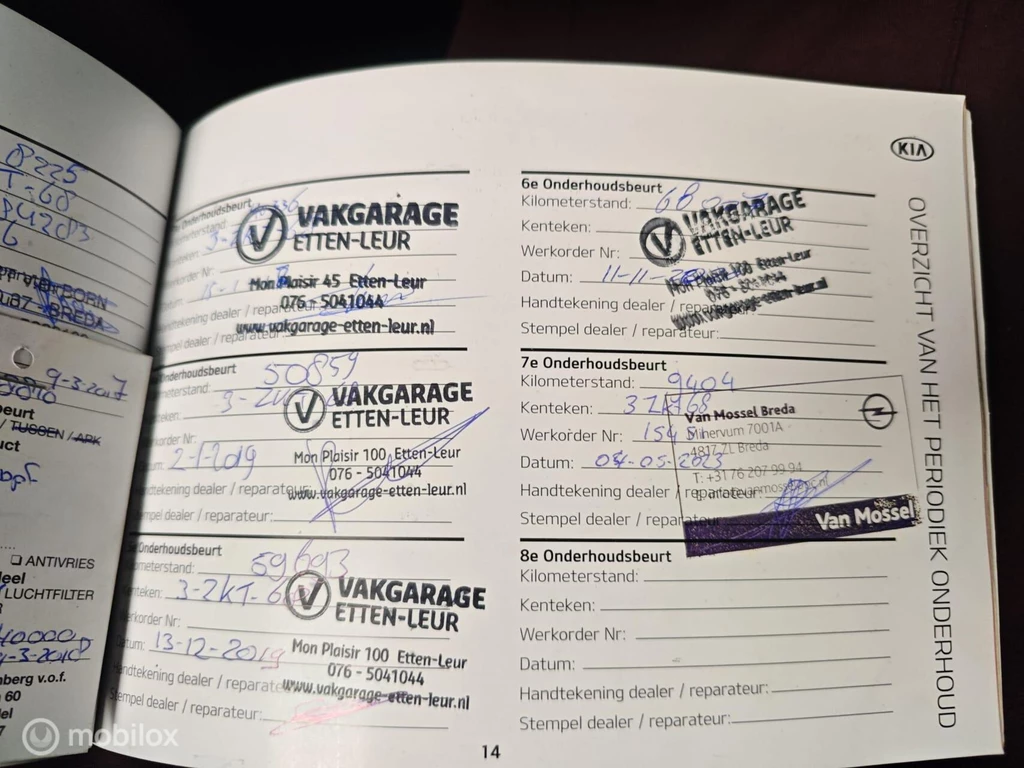 8225
T-68
BREDA
9-3-2017
beurt
/ TUSSEN / APK
uct
❑ ANTIVRIES
LUCHTFILTER
40000
nberg v.o.f.
60
mobilox
Onderhoudsbeurt
VAKGARAGE
ETTEN-LEUR
Mon Plaisir 45 Etten-Leur
076 - 5041044
www.vakgarage-etten-leur.nl
Handtekening dealer / reparateur:
Stempel dealer / reparateur:
Onderhoudsbeurt
50859
VAKGARAGE
ETTEN-LEUR
Werkorder Nr:
2-1-2019
Mon Plaisir 100 Etten-Leur
076 - 5041044
www.vakgarage-etten-leur.nl
Handtekening dealer / reparateur:
Stempel dealer / reparateur:
Onderhoudsbeurt
Kilometerstand: 59693
Kenteken: 3-ZKT-6
VAKGARAGE
ETTEN-LEUR
Werkorder Nr:
Datum: 13-12-2019
Mon Plaisir 100 Etten-Leur
076 - 5041044
www.vakgarage-etten-leur.nl
Handtekening dealer / reparateur:
Stempel dealer / reparateur:
14
KIA
OVERZICHT VAN HET PERIODIEK ONDERHOUD
6e Onderhoudsbeurt
Kilometerstand:
Kenteken:
VAKGARAGE
ETTEN-LEUR
Werkorder Nr:
Datum: 11-11-
Mon Plaisir 100 Etten-Leur
Handtekening dealer / reparateur:
Stempel dealer / reparateur:
7e Onderhoudsbeurt
Kilometerstand: 9404
Kenteken: 3ZKT68
Van Mossel Breda
Werkorder Nr: 154
Minervum 7001A
4817 ZL Breda
Datum: 04-05-2023
T: +31 76 207 99 94
Handtekening dealer / reparateur:
Stempel dealer / reparateur:
Van Mossel
8e Onderhoudsbeurt
Kilometerstand:
Kenteken:
Werkorder Nr:
Datum:
Handtekening dealer / reparateur:
Stempel dealer / reparateur: